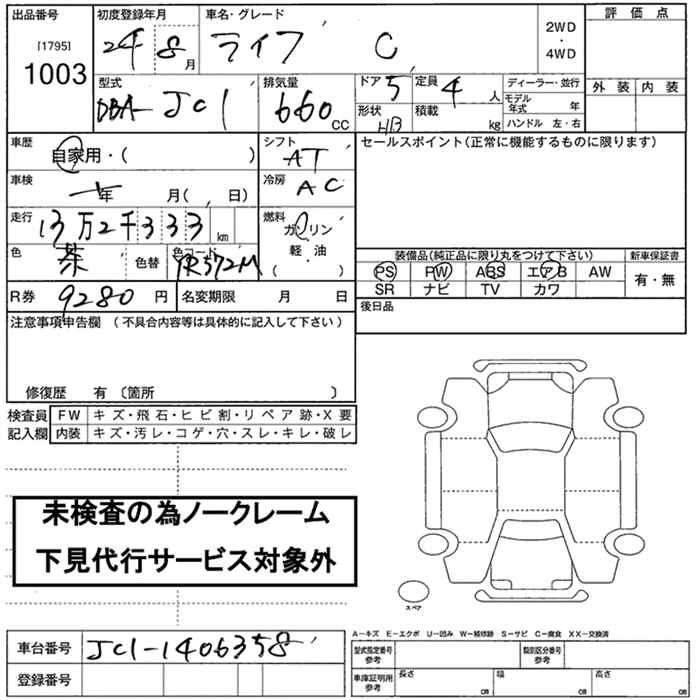 出品番号 初度登録年月 車名・グレード 評価点
[1795] 24年 8月 ライフ C 2WD・4WD
1003
型式 排気量 ドア 5 定員 4人 ディーラー・並行 外装 内装
DBA-JC1 660cc 形状 HB 積載 kg モデル年式 年
ハンドル 左・右
車歴 自家用・( ) シフト AT セールスポイント(正常に機能するものに限ります)
車検 年 月( 日) 冷房 AC
走行 13万2千333km 燃料 ガソリン
軽・油
( )
色 茶 色替 色コード YR572M 装備品(純正品に限り丸をつけて下さい) 新車保証書
PS PW ABS エアB AW 有・無
SR ナビ TV カワ
R券 9280円 名変期限 月 日 後日品
注意事項申告欄 (不具合内容等は具体的に記入して下さい)
修復歴 有 〔箇所 〕
検査員 FW キズ・飛石・ヒビ割・リペア跡・X要
記入欄 内装 キズ・汚レ・コゲ・穴・スレ・キレ・破レ
未検査の為ノークレーム
下見代行サービス対象外
スペア
A-キズ E-エクボ U-凹み W-補修跡 S-サビ C-腐食 XX-交換済
車台番号 JC1-1406358 型式指定番号 参考 類別区分番号 参考
登録番号 車庫証明用 参考 長さ cm 幅 cm 高さ cm